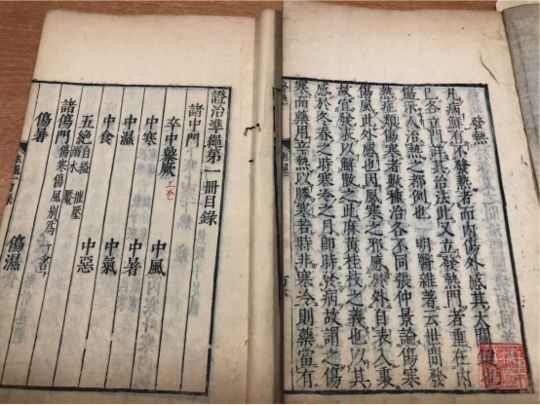 證治準繩第一冊目錄
諸中門
卒中暴厥
中寒 中風
中濕 中暑
中食 中氣
五絕 自縊 摧壓 溺水 魘 中惡
諸傷門 傷寒傷風別為一書
傷暑 傷濕
發熱
凡病鮮有不發熱者而內傷外感其大關
已各立門詳其治法此又立發熱門者重在內
傷示人治熱之都例也 明醫雜著云世間發
熱症類傷寒者數種治各不同張仲景論傷寒
傷風此外感也因風寒之邪感於外自表入裏
故宜發表以解散之此麻黃桂枝之義也以其
感於冬春之時寒冷之月即時發病故謂之傷
寒而藥用辛熱以勝寒若時非寒冷則藥當有